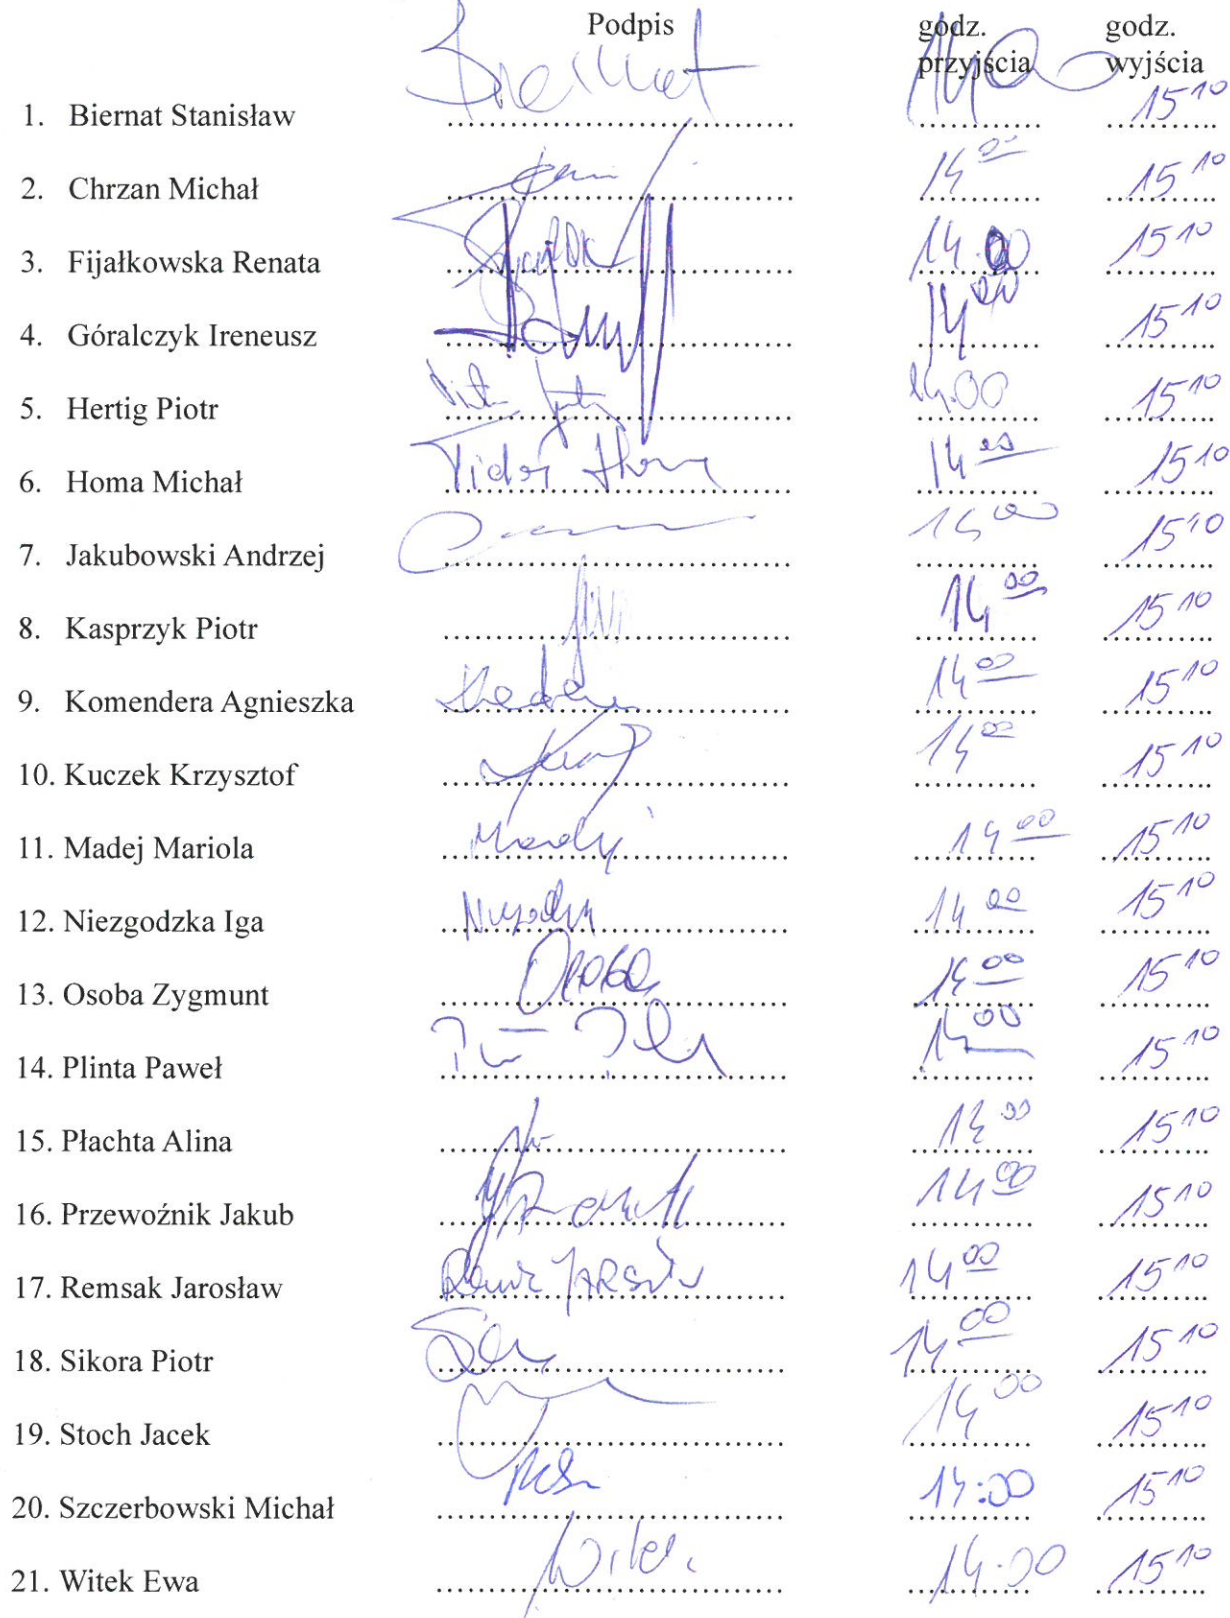 Podpis godz. godz.
przyjścia wyjścia
1. Biernat Stanisław Biernat 14 15 10
2. Chrzan Michał 14 00 15 10
3. Fijałkowska Renata 14.00 15 10
4. Góralczyk Ireneusz 14 00 15 10
5. Hertig Piotr 14.00 15 10
6. Homa Michał 14 00 15 10
7. Jakubowski Andrzej 14 00 15 10
8. Kasprzyk Piotr 14 00 15 10
9. Komendera Agnieszka 14 00 15 10
10. Kuczek Krzysztof 14 00 15 10
11. Madej Mariola Madej 14 00 15 10
12. Niezgodzka Iga 14 00 15 10
13. Osoba Zygmunt Osoba 14 00 15 10
14. Plinta Paweł 14 00 15 10
15. Płachta Alina 14 00 15 10
16. Przewoźnik Jakub 14 00 15 10
17. Remsak Jarosław 14 00 15 10
18. Sikora Piotr 14 00 15 10
19. Stoch Jacek 14 00 15 10
20. Szczerbowski Michał 14:00 15 10
21. Witek Ewa Witek 14.00 15 10